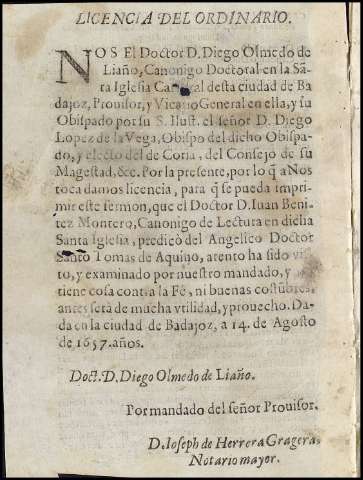 LICENCIA DEL ORDINARIO.
NOS El Doctor D. Diego Olmedo de
Liaño, Canonigo Doctoral en la Sã-
ta Iglesia desta ciudad de Ba
dajoz, Prouisor, y Vicario General en ella, y su
Obispado por su S. Ilust. el señor D. Diego
Lopez de la Vega, Obispo del dicho Obispa-
do, y electo del de Coria, del Consejo de su
Magestad, &c. Por la presente, por lo q̃ a Nos
toca damos licencia, para q̃ se pueda impri-
mir este sermon, que el Doctor D. Iuan Beni-
tez Montero, Canonigo de Lectura en dicha
Santa Iglesia, predicò del Angelico Doctor
Santo Tomas de Aquino, atento ha sido vis-
to, y examinado por nuestro mandado, y
tiene cosa contra la Fè, ni buenas costũbres,
antes serà de mucha vtilidad, y prouecho. Da-
da en la ciudad de Badajoz, a 14. de Agosto
de 1657. años.
Doct. D. Diego Olmedo de Liaño.
Por mandado del señor Prouisor.
D. Ioseph de Herrera Gragera.
Notario mayor.